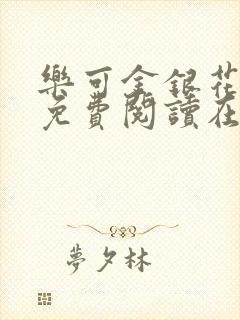 樂可金銀花
免費閱讀在
夢夕林